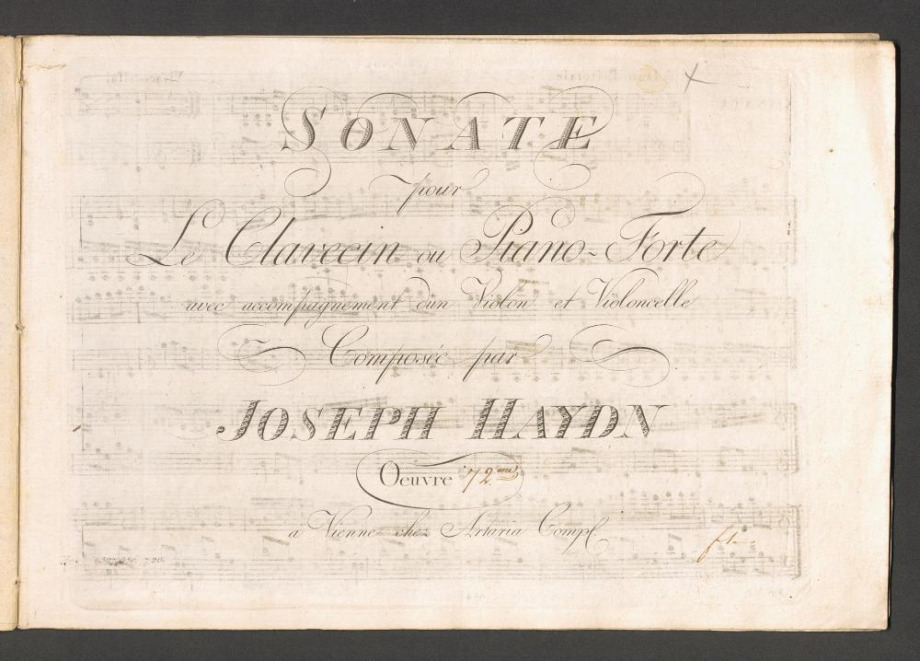 SONATE
pour
Le Clavecin ou Piano-Forte
avec accompagnement d'un Violon et Violoncelle
Composée par
JOSEPH HAYDN
Oeuvre 72
à Vienne chez Artaria Comp